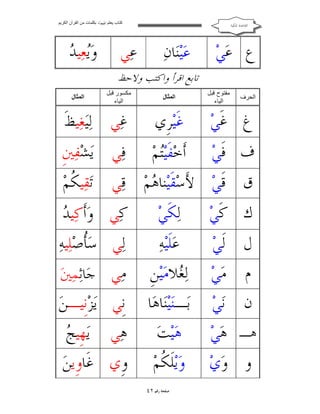 كتاب يعلم تهيئت بكلمات من القرآن الكريم
القاعدة المكية
ع عَيْ عَيْنَانِ عِي وَيُعِيدُ
تابع اقرأ واكتب ولاحظ
الحرف مفتوح قبل الياء المثال مكسور قبل الياء المثال
غ غَيْ غَيْرِي غِي لِيَغِيظَ
ف فَيْ أَخْفَيْتُمْ فِي يَشْفِينِ
ق قَيْ لأَسْقَيْنَاهُمْ قِي تَقِيكُمْ
ك كَيْ لِكَيْ كِي وَأَكِيدُ
ل لَيْ عَلَيْهِ لِي سَأُصْلِيهِ
م مَيْ لِغُلامَيْنِ مِي جَاثِمِينَ
ن نَيْ بَـنَيْنَاهَا نِي يَزْنِيـنَ
هـ هَيْ هَيْتَ هِي يَهِيجُ
و وَيْ وَيْلَكُمْ وِي غَاوِينَ
صفحة رقم ٤٢